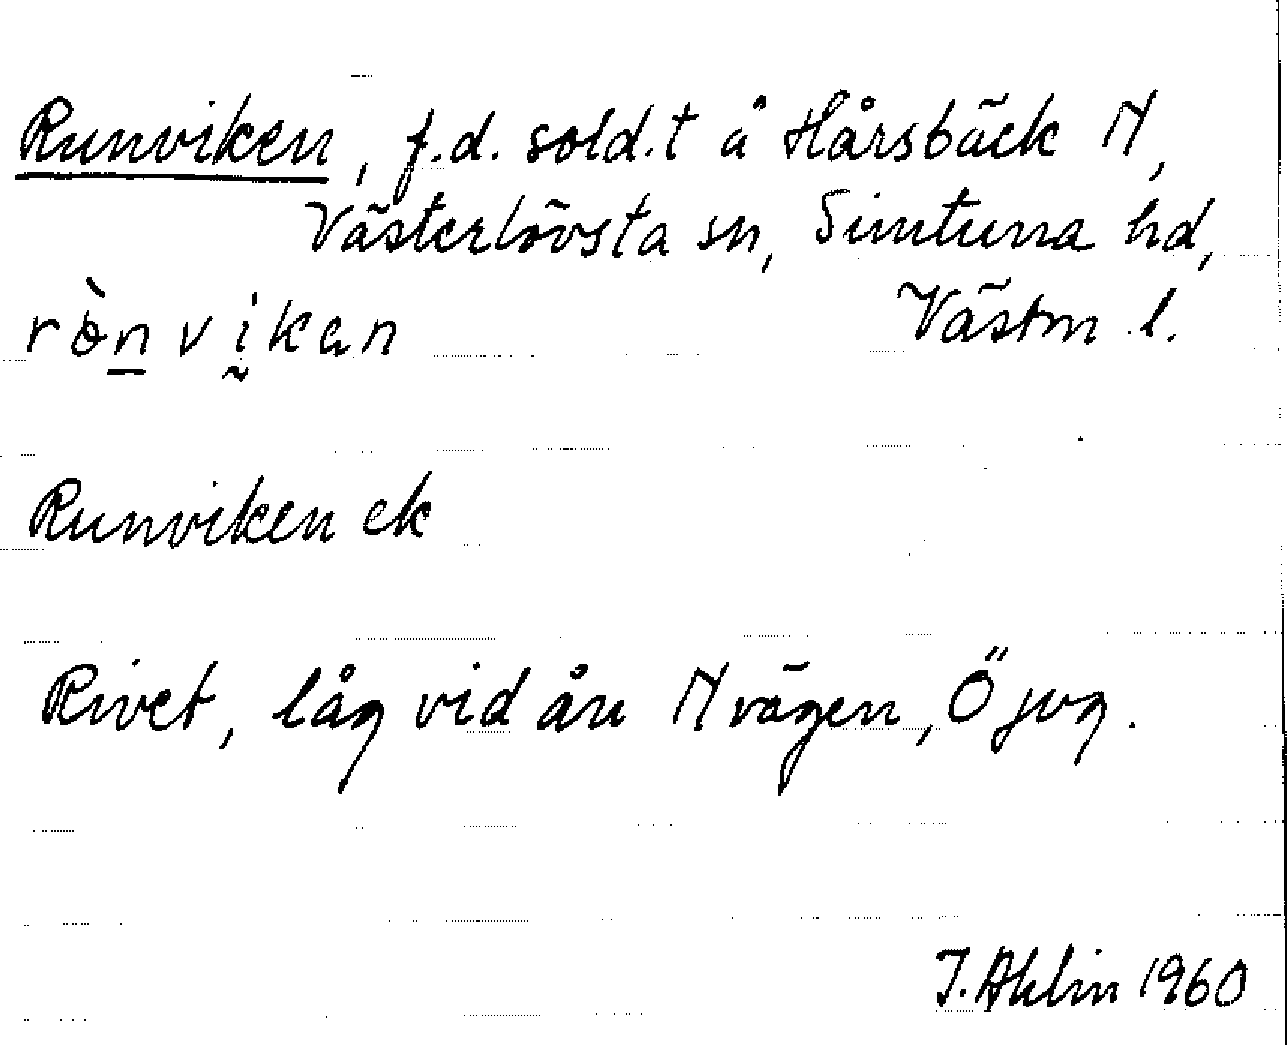 Runviken, f.d. sold.t å Hårsbäck N,
Västerlövsta sn, Simtuna hd,
Västm l.
rònvikan
Runviken ek
Rivet, låg vid ån N vägen, Ö jvg.
J. Ahlin 1960